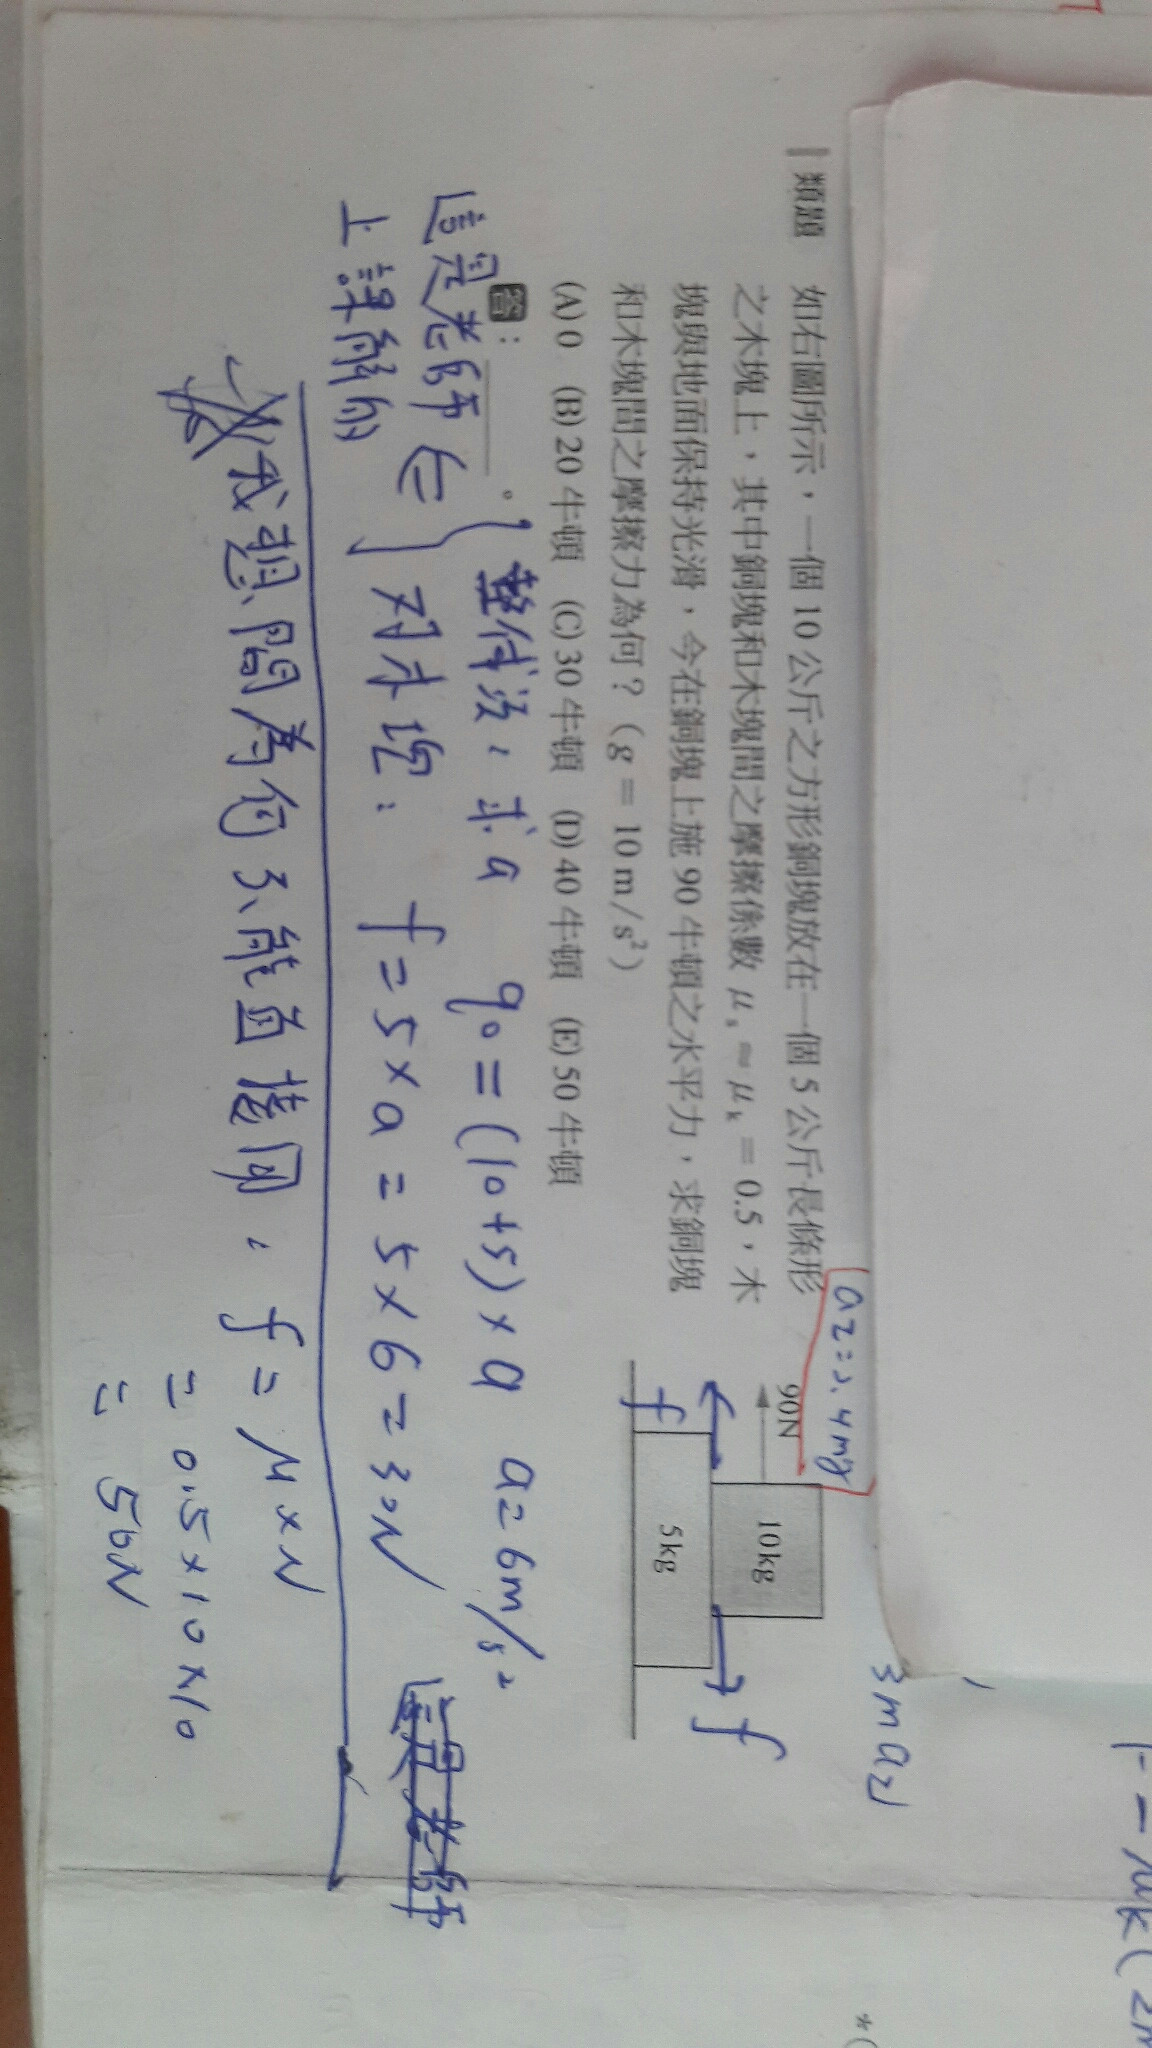 類題 如右圖所示，一個 10 公斤之方形銅塊放在一個 5 公斤長條形
之木塊上，其中銅塊和木塊間之摩擦係數 μs = μk = 0.5，木
塊與地面保持光滑，今在銅塊上施 90 牛頓之水平力，求銅塊
和木塊間之摩擦力為何？（g = 10 m/s²）
(A) 0 (B) 20 牛頓 (C) 30 牛頓 (D) 40 牛頓 (E) 50 牛頓
答：
90N
10kg
5kg
f
f
3ma2
整体法，求a 90=(10+5)×a a=6m/s²
这是老師在
上課解的
对木塊： f=5×a=5×6=30N
這是老師
我想問為何不能直接用，f=μ×N
=0.5×10×10
=50N